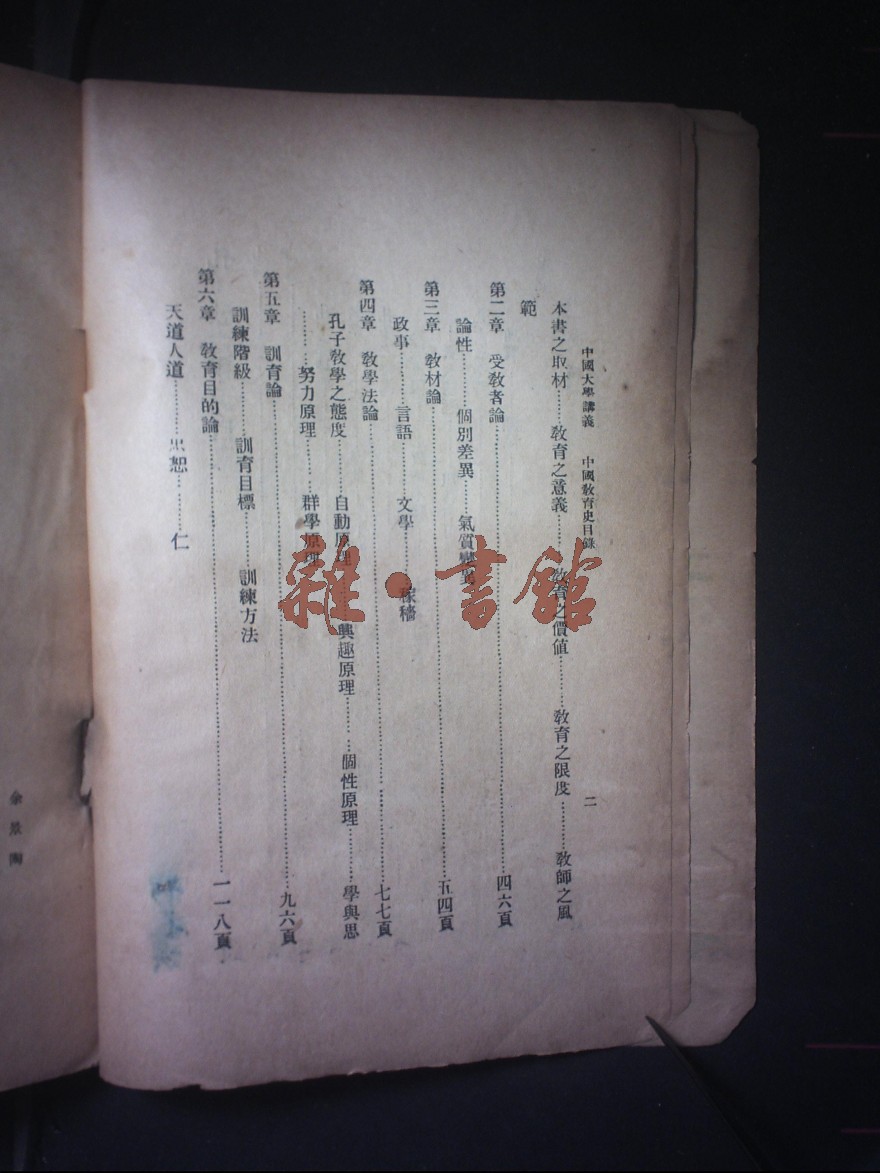 中國大學講義　中國教育史目錄　二
本書之取材……教育之意義………教育之價值………教育之限度…………教師之風
範
第二章　受教者論……………………………………四六頁
論性…………個別差異……氣質變
第三章　教材論……………………………………五四頁
政事…………言語…………文學…………稼穡
第四章　教學法論……………………………………七七頁
孔子教學之態度………自動原理………興趣原理………個性原理………學與思
………努力原理………群學原理
第五章　訓育論……………………………………九六頁
訓練階級…………訓育目標…………訓練方法
第六章　教育目的論……………………………………一一八頁
天道人道…………忠恕…………仁
余景陶
雜·書館